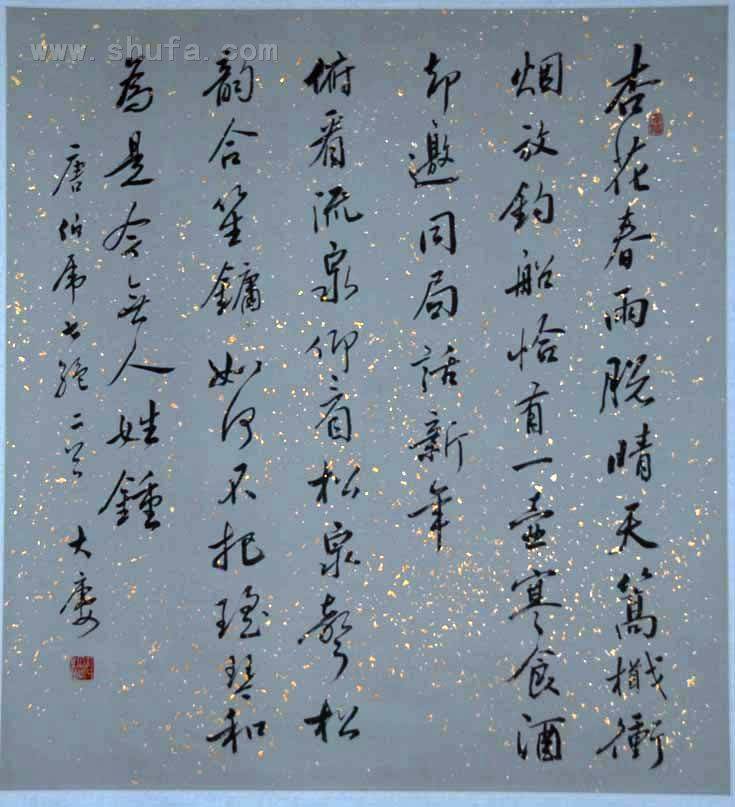 杏花春雨脱晴天篙檝衝
烟放钓船恰有一壺寒食酒
却邀同局話新年
俯看流泉仰看松泉聲松
韵合笙鏞如何不把瑤琴和
為是今無人姓鍾
唐伯虎七絕二首
www.shufa.com